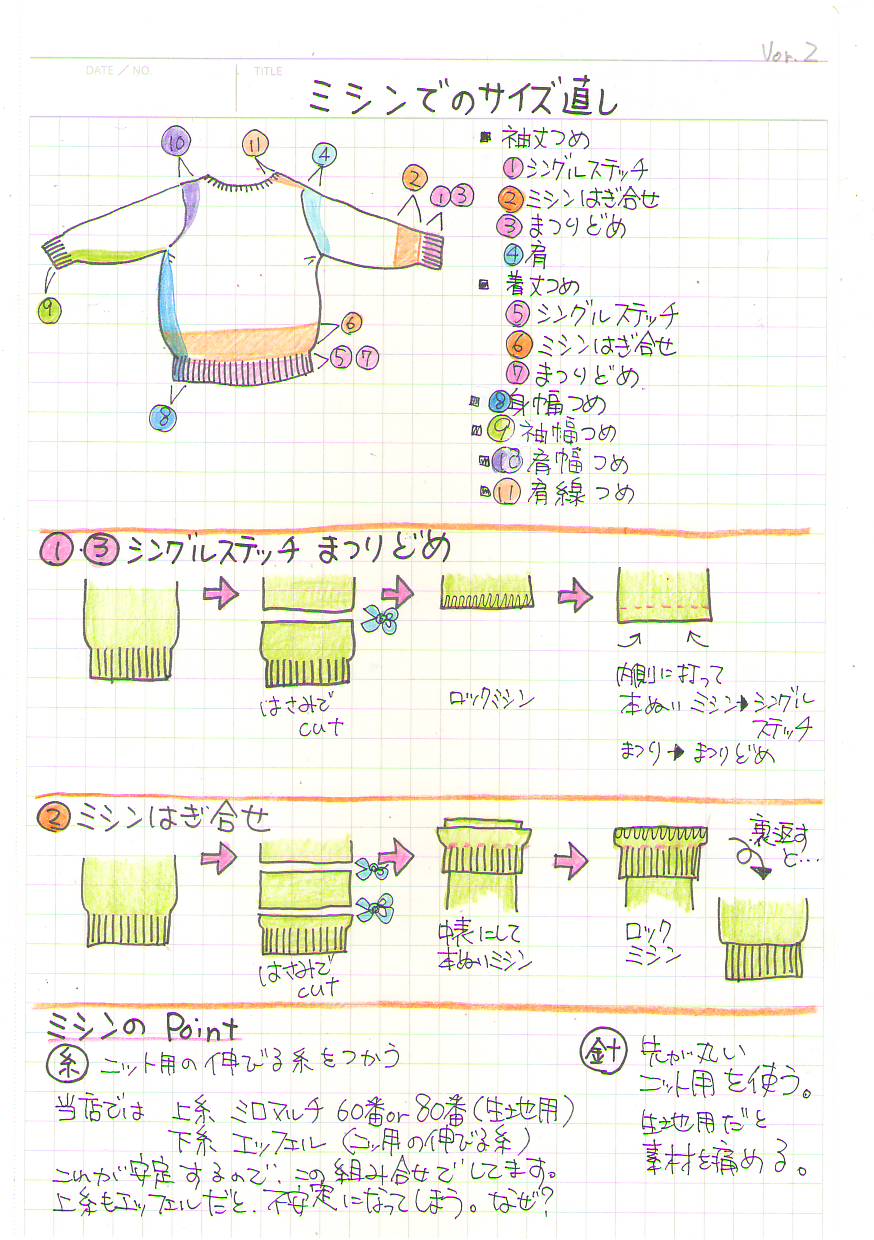 Ver.2
DATE／NO.
TITLE
ミシンでのサイズ直し
⑩
⑪
④
②
①③
⑨
⑥
⑤⑦
⑧
■ 袖丈つめ
①シングルステッチ
②ミシンはぎ合せ
③まつりどめ
④肩
■ 着丈つめ
⑤シングルステッチ
⑥ミシンはぎ合せ
⑦まつりどめ
■⑧身幅つめ
■⑨袖幅つめ
■⑩肩幅つめ
■⑪肩線つめ
①・③シングルステッチ まつりどめ
はさみで
cut
ロックミシン
内側に打って
本ぬい ミシン→シングル
ステッチ
まつり→まつりどめ
②ミシンはぎ合せ
はさみで
cut
中表にして
本ぬいミシン
ロック
ミシン
裏返す
と…
ミシンの Point
糸 ニット用の伸びる糸をつかう
当店では 上糸 ミロマルチ 60番or 80番(生地用)
下糸 エッフェル (ニット用の伸びる糸)
これが安定するので、この組み合せでしてます。
上糸もエッフェルだと、不安定になってしまう。なぜ?
針 先が丸い
ニット用を使う。
生地用だと
素材を痛める。